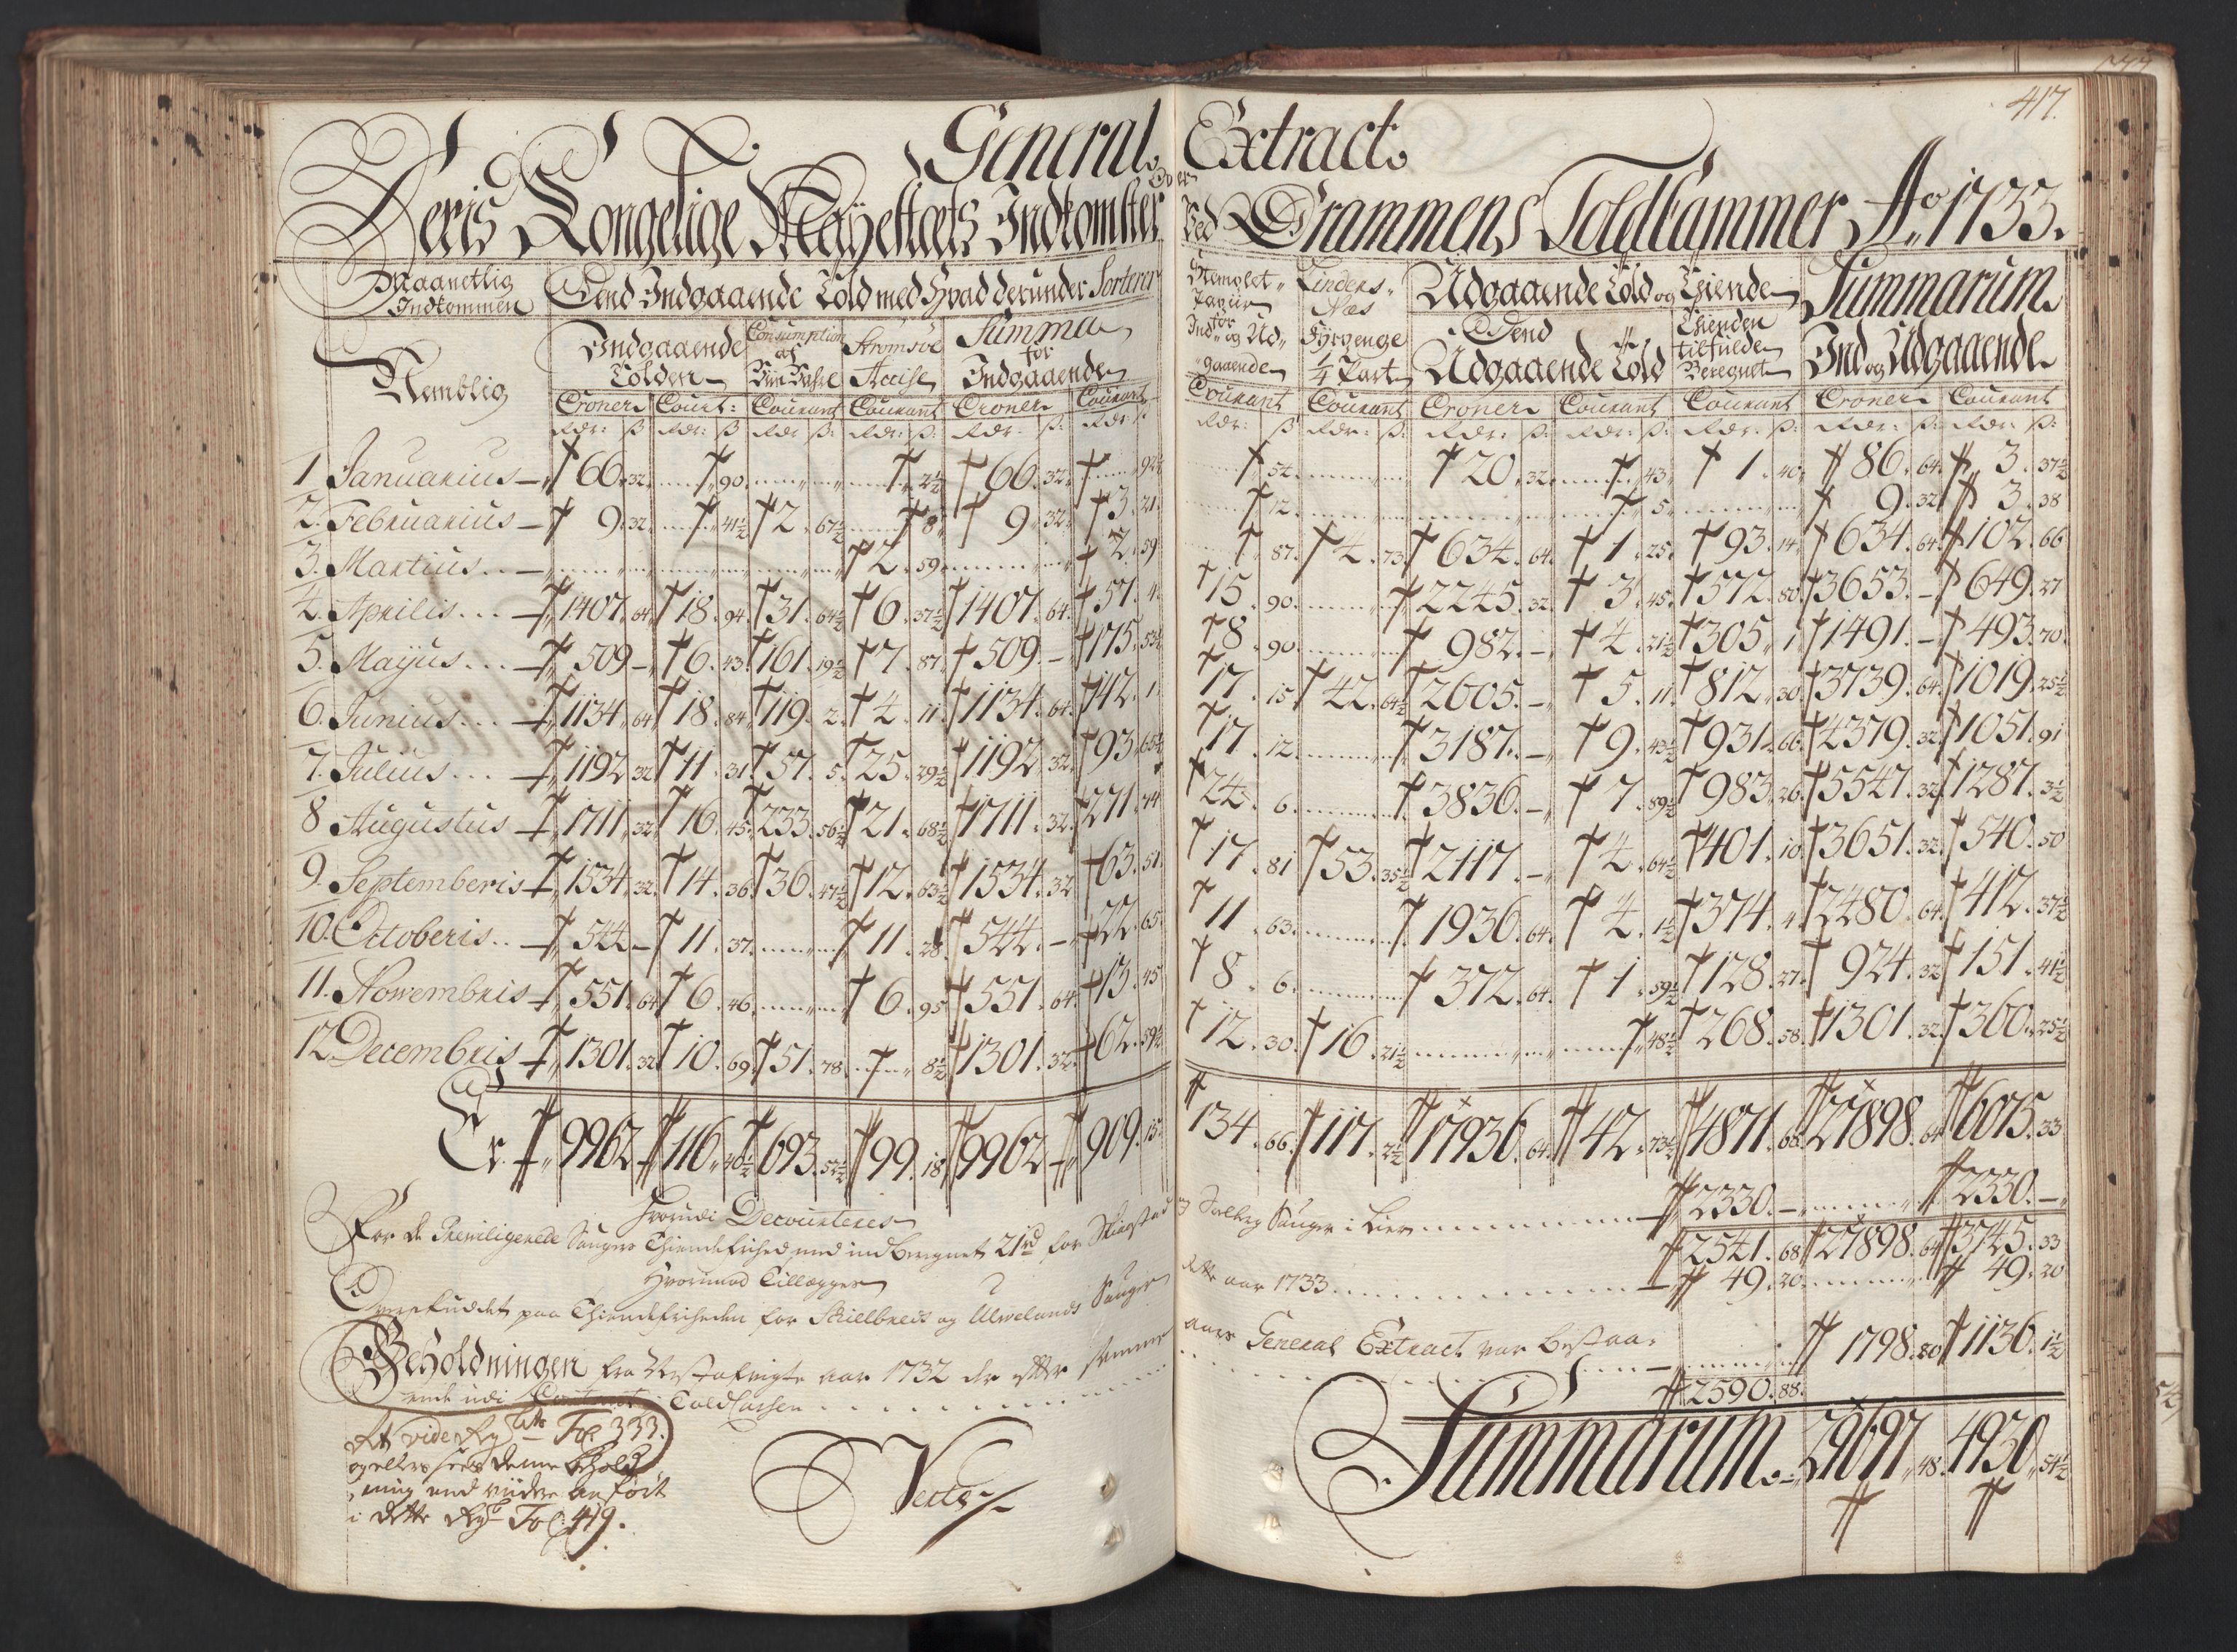 417.
General Extract.
Over
Deris Kongelige Mayestæts Indkomster Ved Drammens Toldkammer Ao 1733.
Maanetlig Indkommen
Nemblig
Dend Indgaaende Told med Hvad derunder Sorterer
Indgaaende Tolden
Consumption af
Strømsøe Accise
Summa for Indgaaende
Stemplet Papiir for Ind- og Udgaaende
Lindes-Næs Fyrpenge 1/4 Part
Udgaaende Told og Tiende
Dend Udgaaende Told
Tienden tilfulde Beregnet
Summarum Ind og Udgaaende
Croner Court: Courant Courant Croner Courant Courant Courant Croner Courant Courant Croner Courant
Rdr: ß Rdr: ß Rdr ß: Rdr: ß: Rdr: ß: Rdr: ß Rdr: ß Rdr: ß: Rdr: ß: Rdr: ß: Rdr: ß: Rdr: ß: Rdr: ß:
1 Januarius 66. 32. 90. 2½ 66. 32. 92½ 54. 20. 32. 43. 1. 40. 86. 64. 3. 37½
2. Februarius 9. 32. 41½ 2. 67½ 8. 9. 32. 3. 21. 12. 5. 9. 32 3. 38
3. Martius 2. 59. 2. 59 87. 4. 73. 634. 64. 1. 25. 93. 14. 634. 64. 102. 66
4. Aprilis 1407. 64. 18. 94. 31. 64½ 6. 37½ 1407. 64. 57. 4. 15. 90. 2245. 32. 3. 45. 572. 80. 3653. – 649. 27
5. Mayus 509 – 6. 43. 161. 19½ 7. 87. 509. – 175. 53½ 8. 90. 982. – 4. 21½ 305. 1. 1491. – 493. 70.
6. Junius 1134. 64 18. 84. 119. 2. 4. 11. 1134. 64. 142. 1. 17. 15 42. 64½ 2605. – 5. 11. 812. 30. 3739. 64. 1019. 25½
7. Julius 1192. 32 11. 31. 57. 5. 25. 29½ 1192. 32. 93. 65½ 17. 12. 3187. – 9. 43½ 931. 66. 4379. 32. 1051. 91
8 Augustus 1711. 32. 16. 45. 233. 56½ 21. 68½ 1711. 32. 271. 74 24. 6. 3836. – 7. 89½ 983. 26. 5547. 32. 1287. 3½
9. Septemberis 1534. 32. 14. 36. 36. 47½ 12. 63½ 1534. 32 63. 51. 17. 81 53. 35½ 2117. – 4. 64½ 401. 10. 3651. 32. 540. 50
10. Octoberis 544 – 11. 37. 11. 28. 544. – 22. 65. 11. 63. 1936. 64. 4. 1½ 374. 4. 2480. 64. 412. 37½
11. Novembris 551. 64 6. 46. 6. 95 551. 64. 13. 45 8. 6. 372. 64. 1. 59½ 128. 27. 924. 32. 151. 41½
12. Decembris 1301. 32. 10. 69. 51. 78. 8½ 1301. 32. 62. 59½ 12. 30. 16. 21½ 48½ 268. 58. 1301. 32. 360. 25½
Er. 9962 116. 40½ 693. 52½ 99. 18 9962 909. 15. 134. 66. 117. 2½ 17936. 64. 42. 73½ 4871. 68. 27898. 64 6075. 33
Hvorudi Decourteres
For de Previligerede Sauger Tiendefrihed med indberegnet 21 rd for Skiøstad og Solberg Sauger i Lier 2330. – 2330. –
2541. 68 27898. 64 3745. 33
Hvorimod Tillægges
Overskuddet paa Tiendefriheden for Skielbreds og Ulvelands Sauger dette aar 1733. 49. 20 49. 20
Beholdningen fra Nestafvigte aar 1732 der efter samme aars General Extract var bestaa-
ende udi Toldcassen 1798. 80 1136. 1½
2590. 88.
Summarum. 29697. 48. 4930. 54½
Att vide Fol. 333.
og ellers sees denne Behold-
ning end videre anført
i dette Fol: 419.
Verte